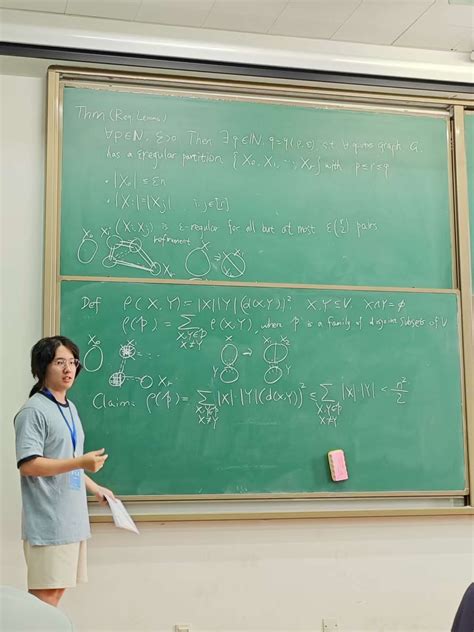 Thm (Reg. Lemma)
∀p∈ℕ, ε>0. Then ∃ q∈ℕ, q=q(p,ε), s.t. ∀ given graph G
has a ε-regular partition {X₀, X₁, ..., Xᵣ} with p≤r≤q
· |X₀| ≤ εn
· |Xᵢ|=|Xⱼ|, i,j∈[r]
· (Xᵢ,Xⱼ) is ε-regular for all but at most ε(ʳ₂) pairs
X₀ X₁ refinement X
Xᵣ
Def ρ(X,Y)=|X||Y|(d(X,Y))², X,Y⊆V, X∩Y=∅
ρ(𝒫)=∑ ρ(X,Y), where 𝒫 is a family of disjoint subsets of V
X,Y∈𝒫
X≠Y
X₀ X X₁ X₂
Xᵣ Y Y
Claim: ρ(𝒫)=∑|X|·|Y|(d(X,Y))² ≤ ∑|X|·|Y| < n²/2
X,Y∈𝒫 X,Y∈𝒫
X≠Y X≠Y